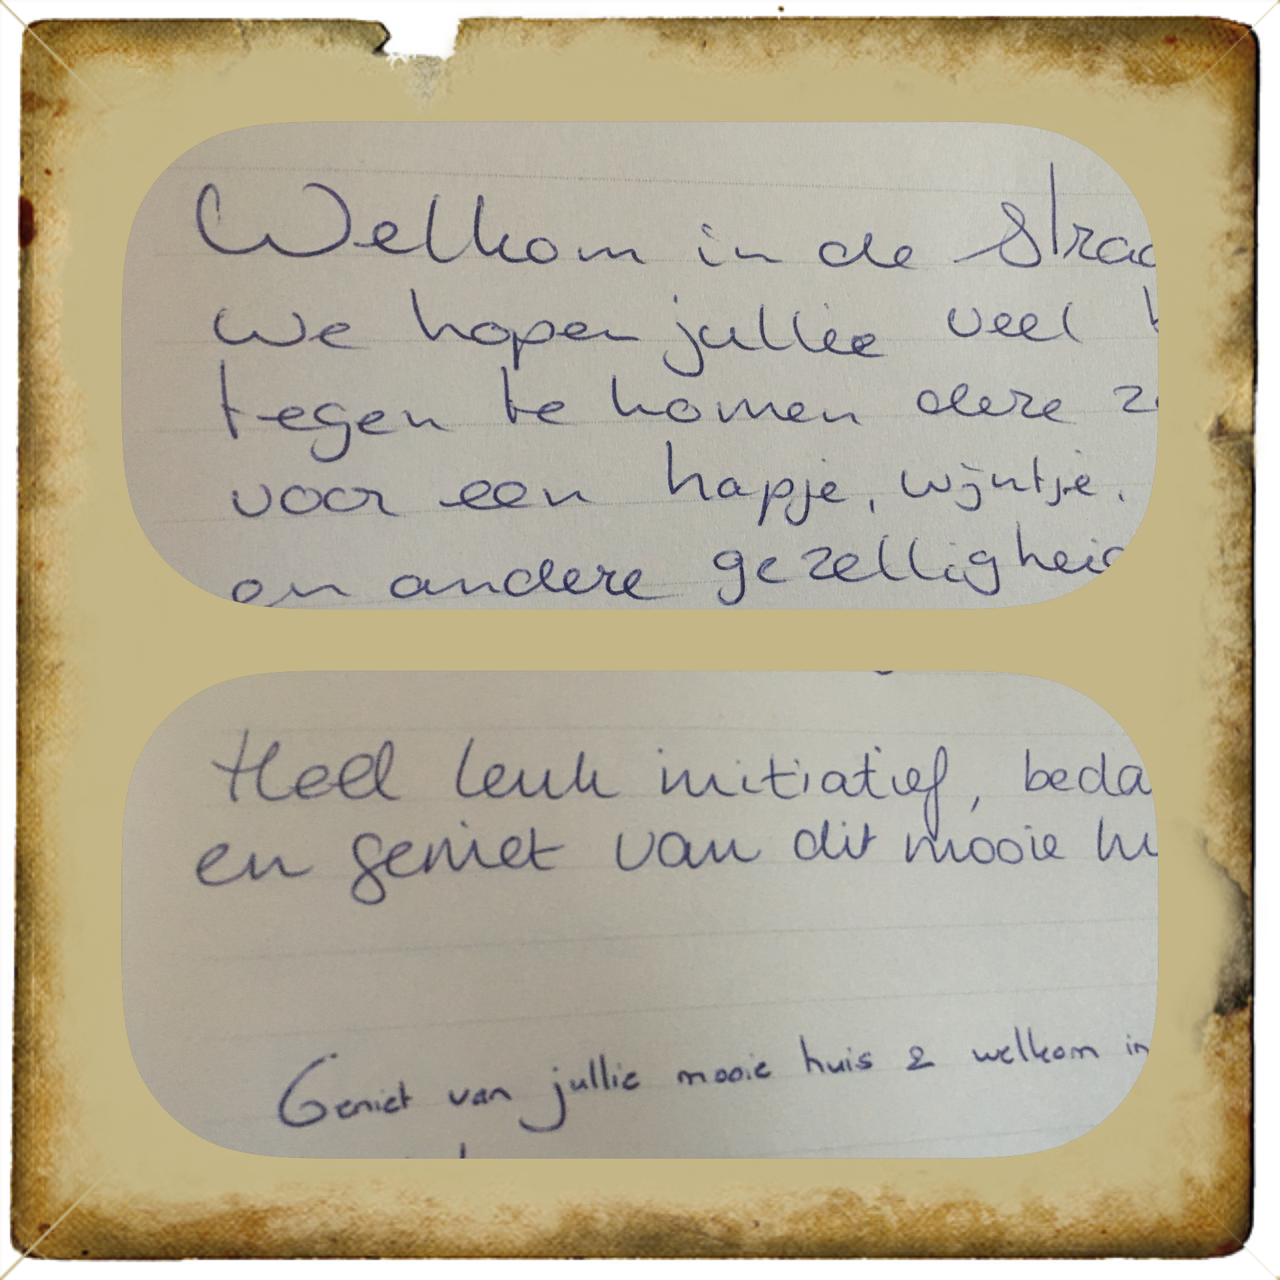 Welkom in de straa
We hopen jullie veel
tegen te komen deze
voor een hapje, wijntje.
en andere gezelligheid
Heel leuk initiatief, beda
en geniet van dit mooie hu
Geniet van jullie mooie huis & welkom in